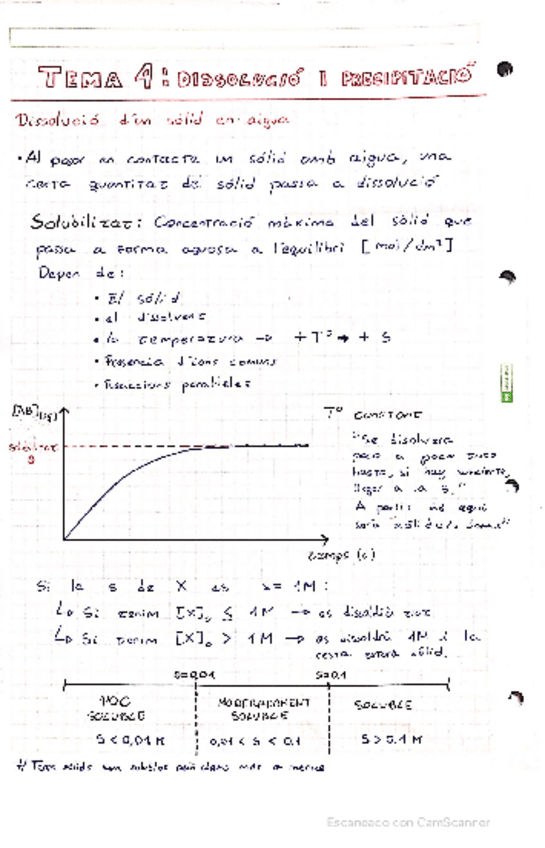 TEMA 4: DISSOLUCIÓ I PRECIPITACIÓ
Dissolució d'un sòlid en aigua
• Al posar en contacte un sòlid amb aigua, una
certa quantitat del sòlid passa a dissolució
Solubilitat: Concentració màxima del sòlid que
passa a forma aquosa a l'equilibri [mol/dm³]
Depen de:
• El sòlid
• el dissolvent
• la temperatura → + Tª → + s
• Presencia d'ions comuns
• Reaccions paral·leles
Tª CONSTANT
"Se disolverá
poco a poco
hasta, si hay suficiente,
llegar a la s."
A partir de aquí
temps (s)
Si la s de X es s = 1M:
↳ Si tenim [X]₀ ≤ 1M → es dissoldrà tot
↳ Si tenim [X]₀ > 1M → es dissoldrà 1M i la
resta estarà sòlid.
s=0,01 s=0,1
POC SOLUBLE MODERADAMENT SOLUBLE SOLUBLE
s < 0,01 M 0,01 < s < 0,1 s > 0.1 M
Escaneado con CamScanner